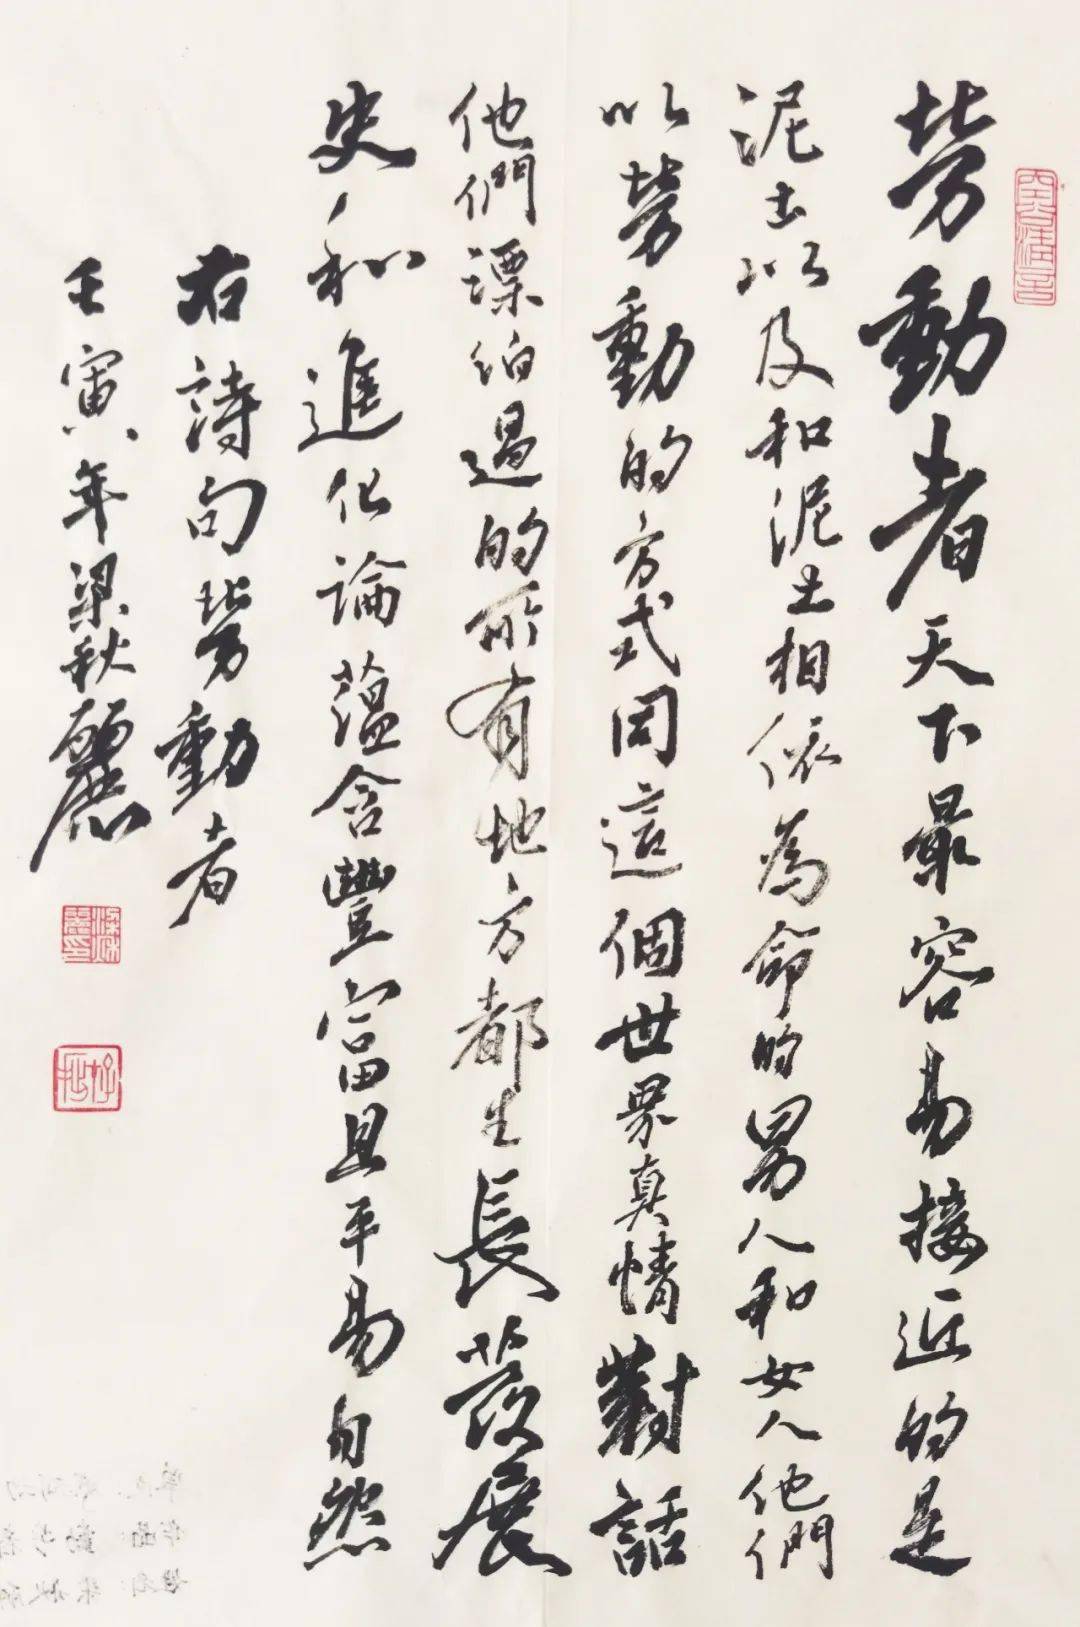 勞動者天下最容易接近的是
泥土以及和泥土相依為命的男人和女人他們
以勞動的方式同這個世界真情對話
他們漂泊過的所有地方都生長發展
史和進化論蘊含豐富且平易自然
右詩句勞動者
壬寅年梁秋麗
梁秋麗印